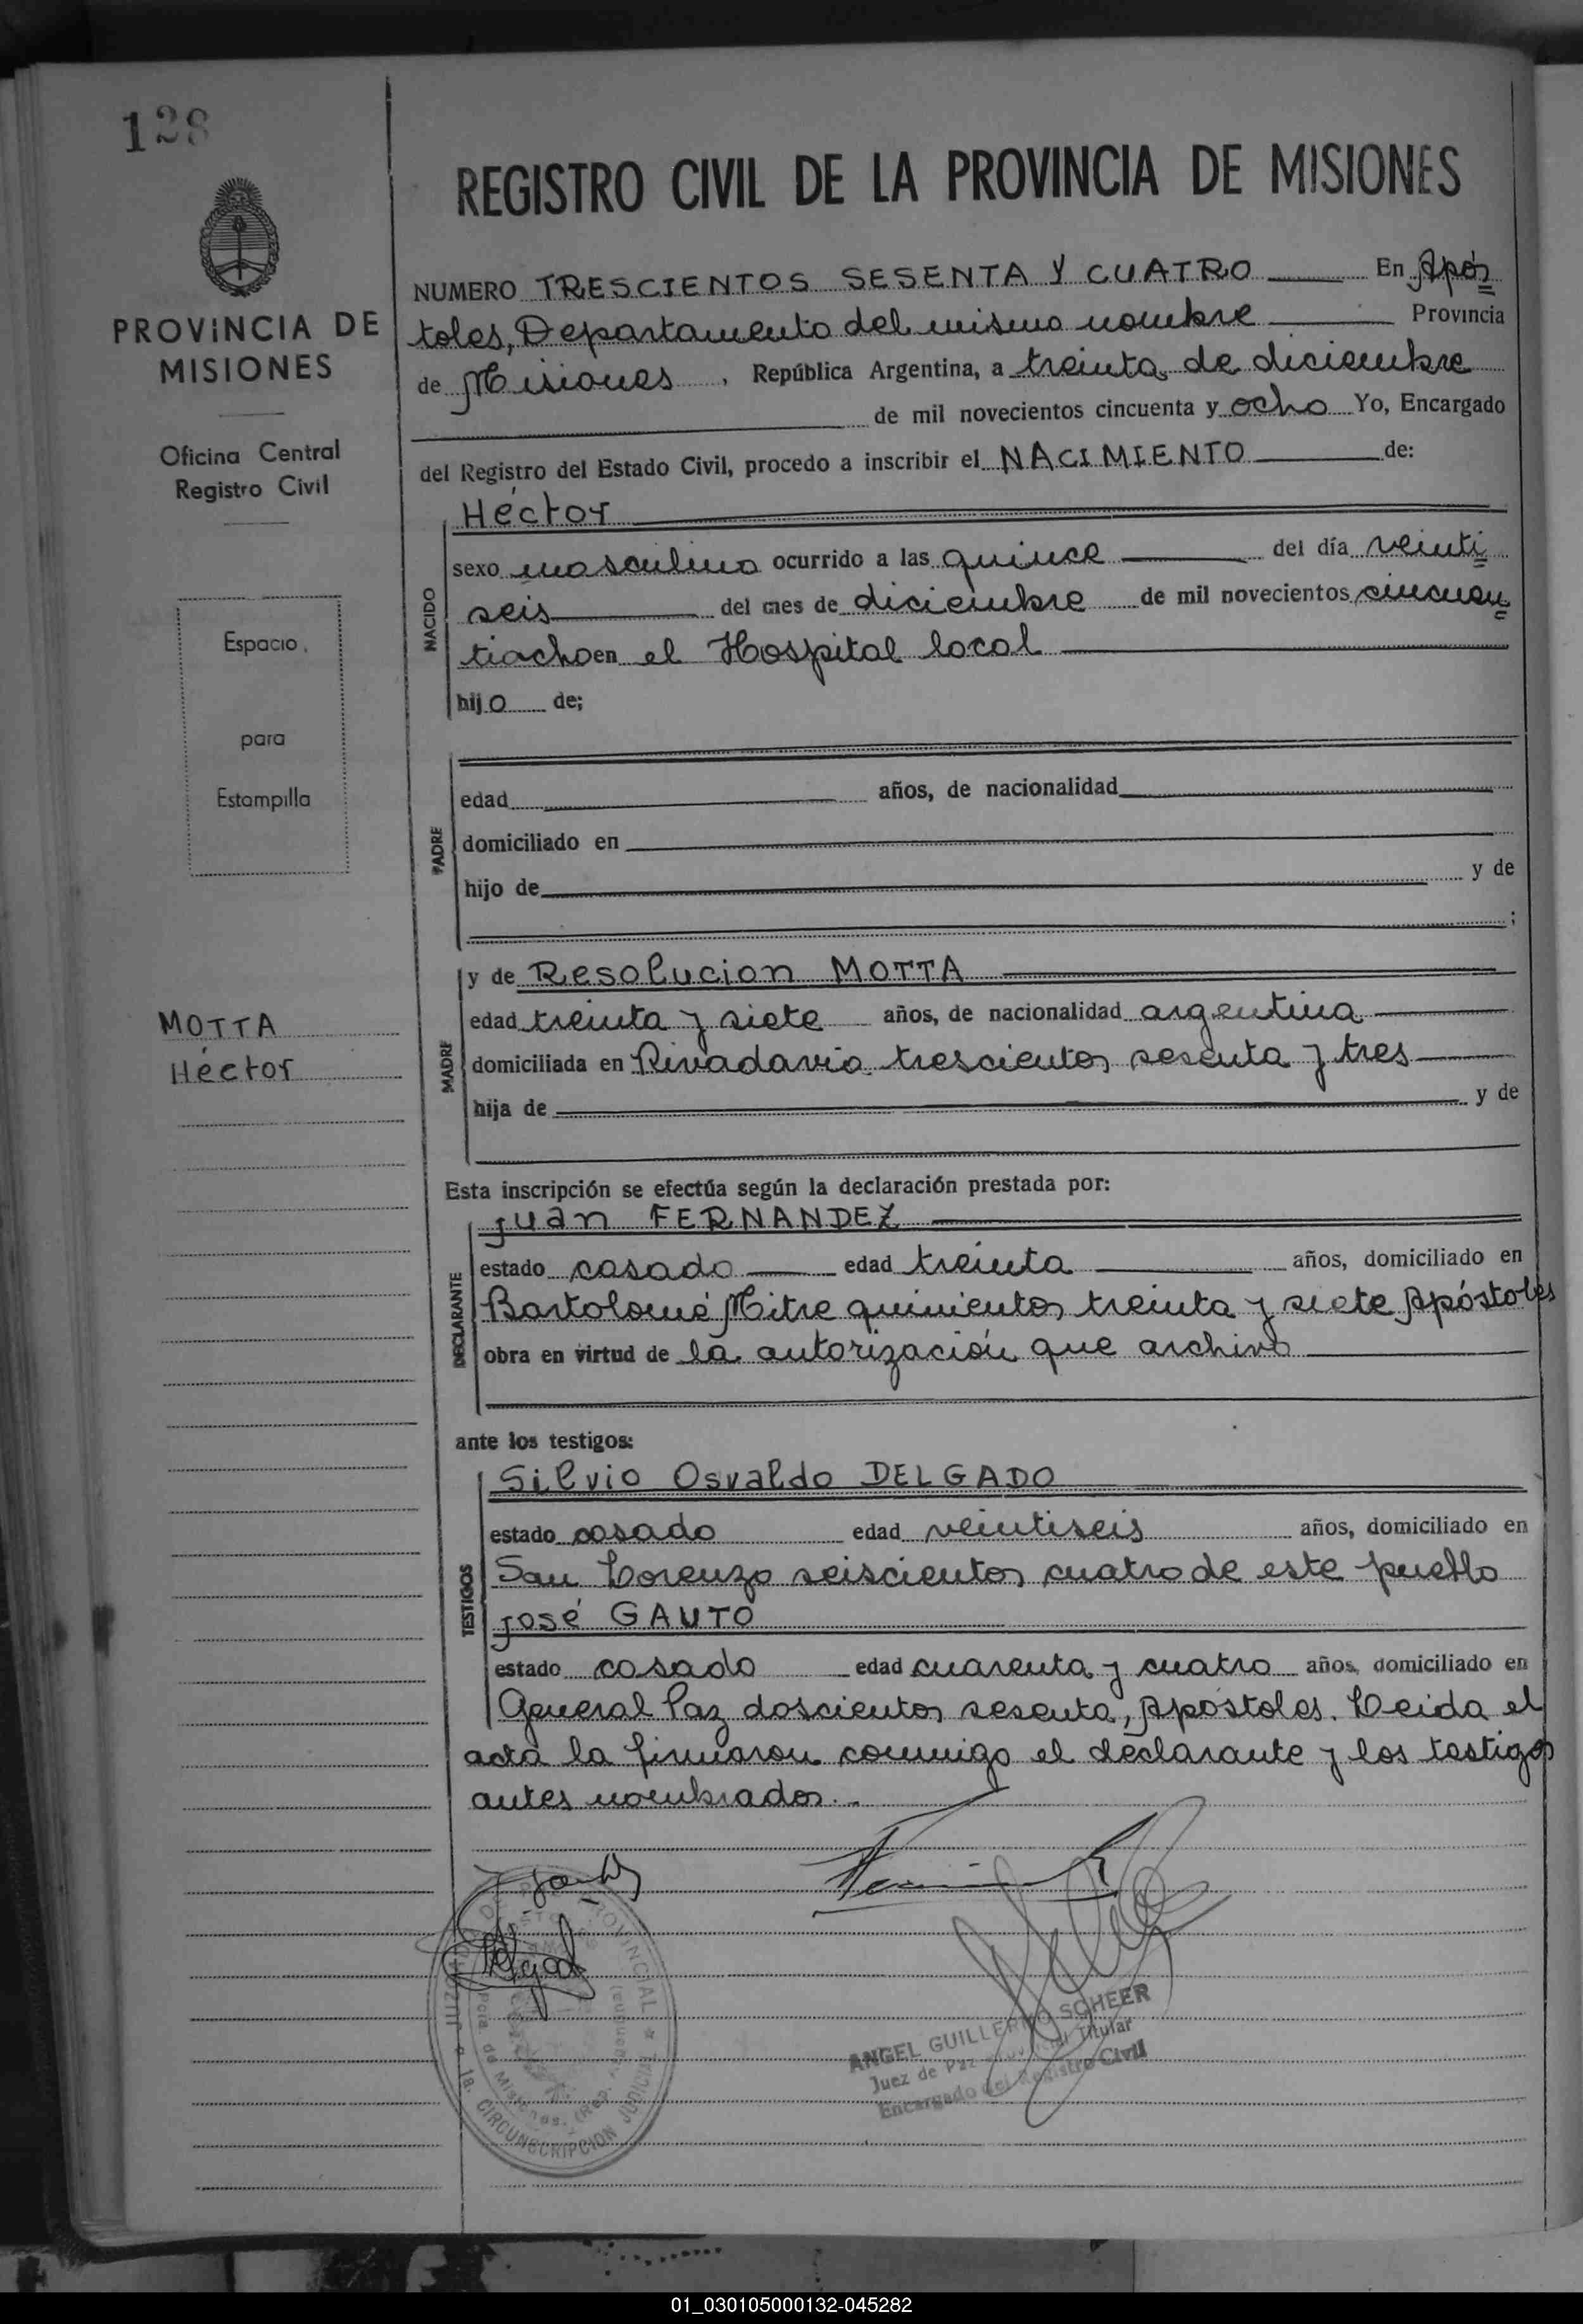 128
PROVINCIA DE
MISIONES
Oficina Central
Registro Civil
Espacio
para
Estampilla
MOTTA
Héctor
REGISTRO CIVIL DE LA PROVINCIA DE MISIONES
NUMERO TRESCIENTOS SESENTA Y CUATRO En Após
toles, Departamento del mismo nombre Provincia
de Misiones, República Argentina, a treinta de diciembre
de mil novecientos cincuenta y ocho Yo, Encargado
del Registro del Estado Civil, procedo a inscribir el NACIMIENTO de:
NACIDO
Héctor
sexo masculino ocurrido a las quince del día veinti
seis del mes de diciembre de mil novecientos cincuen
tiocho en el Hospital local
hijo de;
PADRE
edad años, de nacionalidad
domiciliado en
hijo de y de
;
MADRE
y de Resolucion MOTTA
edad treinta y siete años, de nacionalidad argentina
domiciliada en Rivadavia trescientos sesenta y tres
hija de y de
Esta inscripción se efectúa según la declaración prestada por:
DECLARANTE
Juan FERNANDEZ
estado casado edad treinta años, domiciliado en
Bartolomé Mitre quinientos treinta y siete Apóstoles
obra en virtud de la autorización que archivo
ante los testigos:
TESTIGOS
Silvio Osvaldo DELGADO
estado casado edad veintiseis años, domiciliado en
San Lorenzo seiscientos cuatro de este pueblo
José GAUTO
estado casado edad cuarenta y cuatro años, domiciliado en
General Paz doscientos sesenta, Apóstoles. Leida el
acta la firmaron conmigo el declarante y los testigos
antes nombrados.
ANGEL GUILLERMO SCHEER
Juez de Paz Titular
Encargado del Registro Civil
PROVINCIAL
1a. CIRCUNSCRIPCION JUDICIAL
Pcia. de Misiones. (Rep.
01_030105000132-045282